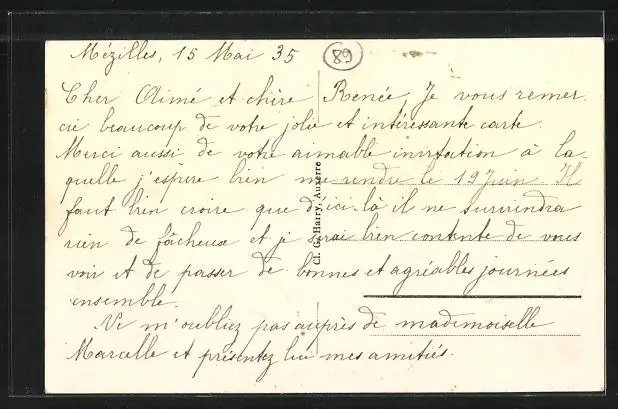 Mézilles, 15 Mai 35
89
Cher Aimé et chère Renée, Je vous remer-
cie beaucoup de votre jolie et intéressante carte.
Merci aussi de votre aimable invitation à la-
quelle j'espère bien me rendre le 19 Juin. Il
faut bien croire que d'ici-là il ne surviendra
rien de fâcheux et je serai bien contente de vous
voir et de passer de bonnes et agréables journées
ensemble.
Ne m'oubliez pas auprès de mademoiselle
Marcelle et présentez lui mes amitiés.
Cl. G. Harry, Auxerre